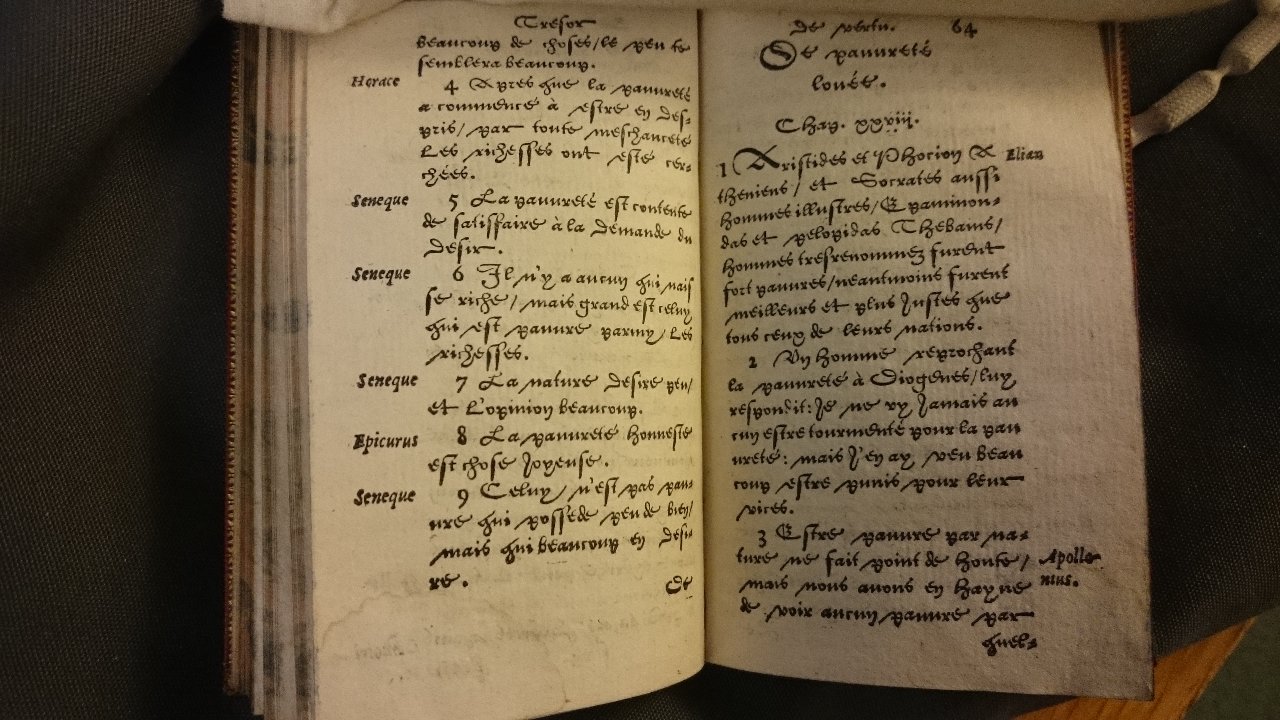 Tresor
beaucoup de choses/le peu te
semblera beaucoup.
Horace 4 Apres que la pauureté
a commencé à estre en des-
pris/ par toute meschanceté
Les richesses ont esté cer-
chées.
Seneque 5 La pauureté est contente
de satisfaire à la demande du
desir.
Seneque 6 Il n'y a aucun qui nais
se riche/ mais grand est celuy
qui est pauure parmy/ les
richesses.
Seneque 7 La nature desire peu/
et L'opinion beaucoup.
Epicurus 8 La pauureté honneste
est chose Joyeuse.
Seneque 9 Celuy/ n'est pas pau-
ure qui possede peu de bien/
mais qui beaucoup en desi-
re.
De
de vertu. 64
De pauureté
louée.
Chap. xxviij.
1 Aristides et Phocion A Elian
theniens/ et Socrates aussi
hommes illustres/ Epaminon-
das et pelopidas Thebains/
hommes tresrenommez furent
fort pauures/neantmoins furent
meilleurs et plus Justes que
tous ceux de leurs nations.
2 Vn homme reprochant
la pauureté à Diogenes/luy
respondit: Je ne vy Jamais au
cun estre tourmenté pour la pau
ureté: mais J'en ay veu beau
coup estre punis pour leur
vices.
3 Estre pauure par na-
ture ne fait point de honte/ Apollo-
mais nous auons en hayne nius.
de voir aucun pauure par
quel-